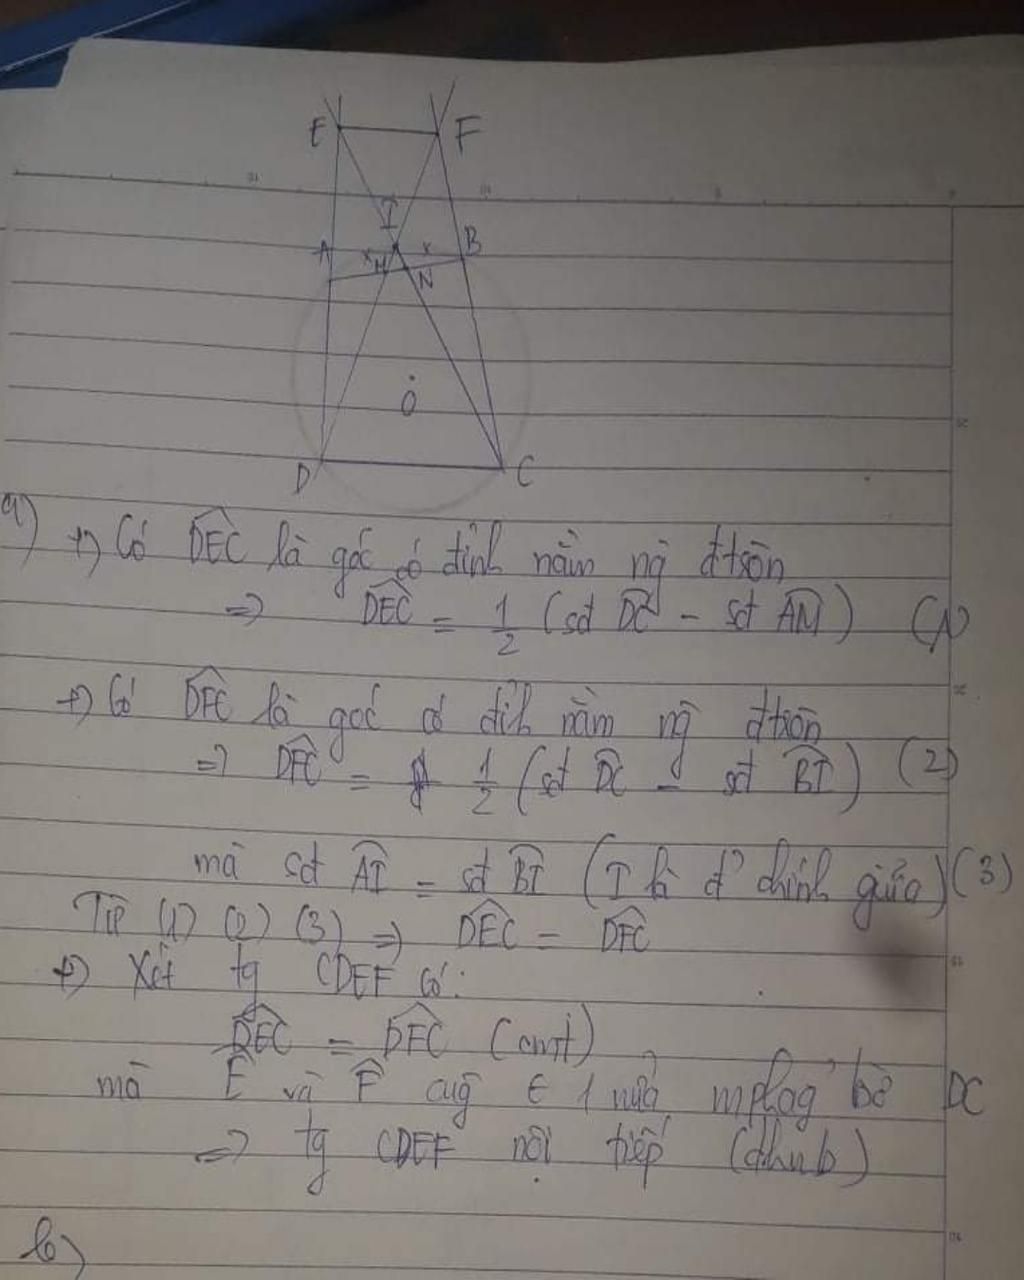 E F
I
A x M x B
N
O
D C
a) +) Có DEC là góc có đỉnh nằm ng̃ đtròn
=> DEC = 1/2 (sđ DC - sđ AM) (1)
+) Có DFC là góc có đỉh nằm ng̃ đtròn
=> DFC = 1/2 (sđ DC - sđ BI) (2)
mà sđ AI = sđ BI (I là đ' chính giữa) (3)
Từ (1) (2) (3) => DEC = DFC
+) Xét tg CDEF có:
DEC = DFC (cmt)
mà E và F cùg ∈ 1 nửa mphag bờ DC
=> tg CDEF nội tiếp (dhnb)
b)